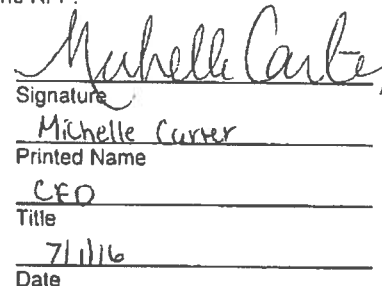 the RFP.
Michelle Carter
Signature
Michelle Carter
Printed Name
CEO
Title
7/1/16
Date